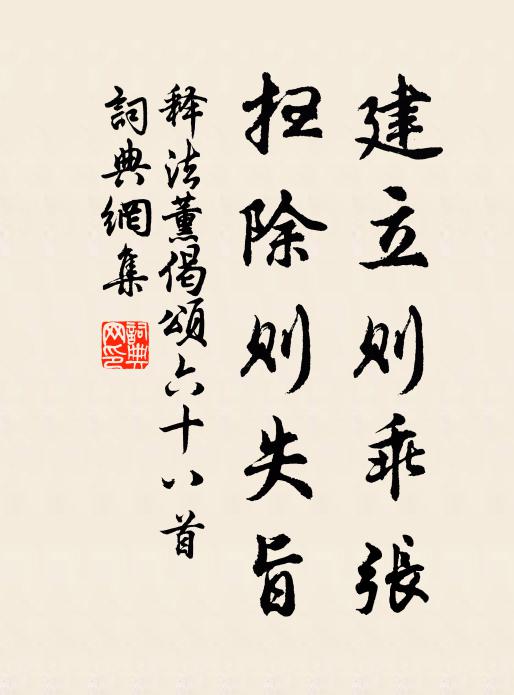 建立则乖張
扫除则失旨
释法薰偈頌六十八首
詞典網集
詞典网印